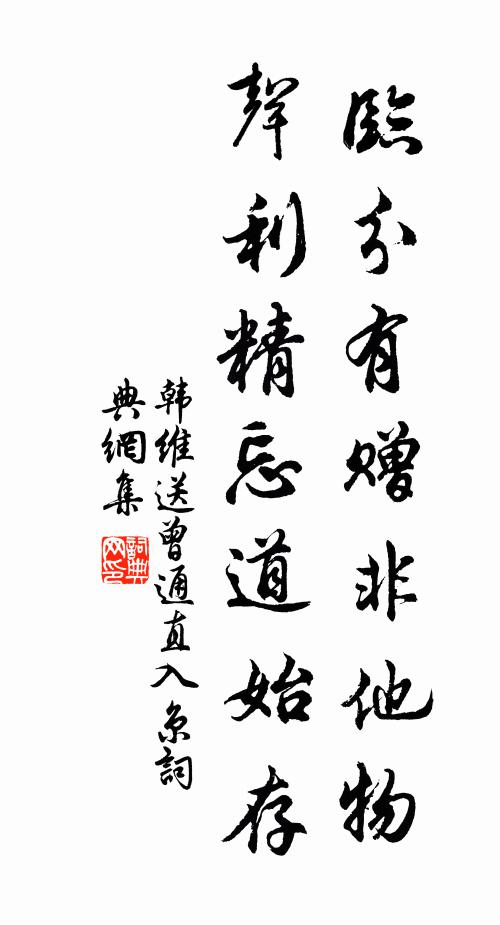 臨分有赠非他物
聲利精忘道始存
韩维送曾通直入京詞
典網集
詞典网印